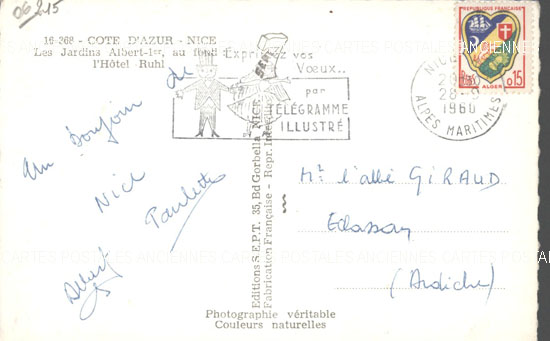 06 215
16-268 - COTE D'AZUR - NICE
Les Jardins Albert-Ier, au fond
l'Hôtel Ruhl
Un Bonjour de
Nice
Paulette
Albert
Exprimez vos
Vœux..
par
TÉLÉGRAMME
ILLUSTRÉ
NICE
28-9
1960
ALPES MARITIMES
REPUBLIQUE FRANÇAISE
POSTES
0,15
ALGER
Editions S.E.P.T. 35, Bd Gorbella NICE
Fabrication Française - Repr. Inter.
Mr l'abbé GIRAUD
Eclassan
(Ardèche)
Photographie véritable
Couleurs naturelles
CARTES POSTALES ANCIENNES